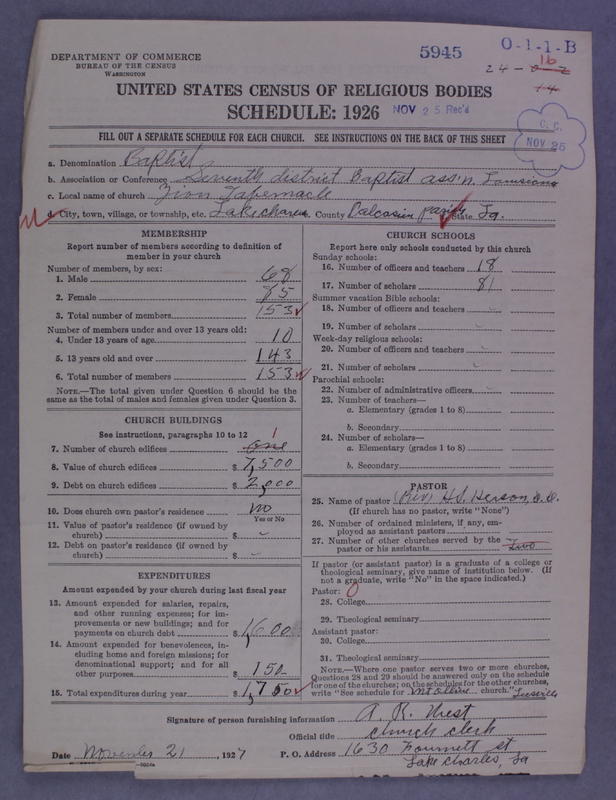 5945
O-1-1-B
16
24-0-2
14
DEPARTMENT OF COMMERCE
BUREAU OF THE CENSUS
WASHINGTON
UNITED STATES CENSUS OF RELIGIOUS BODIES
SCHEDULE: 1926
NOV 25 Rec'd
C. C.
NOV 25
FILL OUT A SEPARATE SCHEDULE FOR EACH CHURCH. SEE INSTRUCTIONS ON THE BACK OF THIS SHEET
a. Denomination Baptist
b. Association or Conference Seventh district Baptist ass'n. Louisiana
c. Local name of church Zion Tabernacle
d. City, town, village, or township, etc. Lake County Calcasieu parish State La.
MEMBERSHIP
Report number of members according to definition of
member in your church
Number of members, by sex:
1. Male 68
2. Female 85
3. Total number of members 153
Number of members under and over 13 years old:
4. Under 13 years of age 10
5. 13 years old and over 143
6. Total number of members 153
NOTE.—The total given under Question 6 should be the
same as the total of males and females given under Question 3.
CHURCH BUILDINGS
See instructions, paragraphs 10 to 12
7. Number of church edifices one 1
8. Value of church edifices $ 7,500
9. Debt on church edifices $ 2,000
10. Does church own pastor's residence no
Yes or No
11. Value of pastor's residence (if owned by
church) $ -
12. Debt on pastor's residence (if owned by
church) $ -
EXPENDITURES
Amount expended by your church during last fiscal year
13. Amount expended for salaries, repairs,
and other running expenses; for im-
provements or new buildings; and for
payments on church debt $ 1,600
14. Amount expended for benevolences, in-
cluding home and foreign missions; for
denominational support; and for all
other purposes $ 150
15. Total expenditures during year $ 1,750
CHURCH SCHOOLS
Report here only schools conducted by this church
Sunday schools:
16. Number of officers and teachers 18
17. Number of scholars 81
Summer vacation Bible schools:
18. Number of officers and teachers -
19. Number of scholars -
Week-day religious schools:
20. Number of officers and teachers -
21. Number of scholars -
Parochial schools:
22. Number of administrative officers -
23. Number of teachers—
a. Elementary (grades 1 to 8)
b. Secondary
24. Number of scholars—
a. Elementary (grades 1 to 8)
b. Secondary
PASTOR
25. Name of pastor (Rev) H.S.
(If church has no pastor, write "None")
26. Number of ordained ministers, if any, em-
ployed as assistant pastors
27. Number of other churches served by the
pastor or his assistants Two
If pastor (or assistant pastor) is a graduate of a college or
theological seminary, give name of institution below. (If
not a graduate, write "No" in the space indicated.)
Pastor: 0
28. College
29. Theological seminary
Assistant pastor:
30. College
31. Theological seminary
NOTE.—Where one pastor serves two or more churches,
Questions 28 and 29 should be answered only on the schedule
for one of the churches; on the schedules for the other churches,
write "See schedule for Mt Olive church." Leesville
Signature of person furnishing information A. R. West
Official title church clerk
Date November 21, 1927 P. O. Address 1630 st
Lake Charles, La